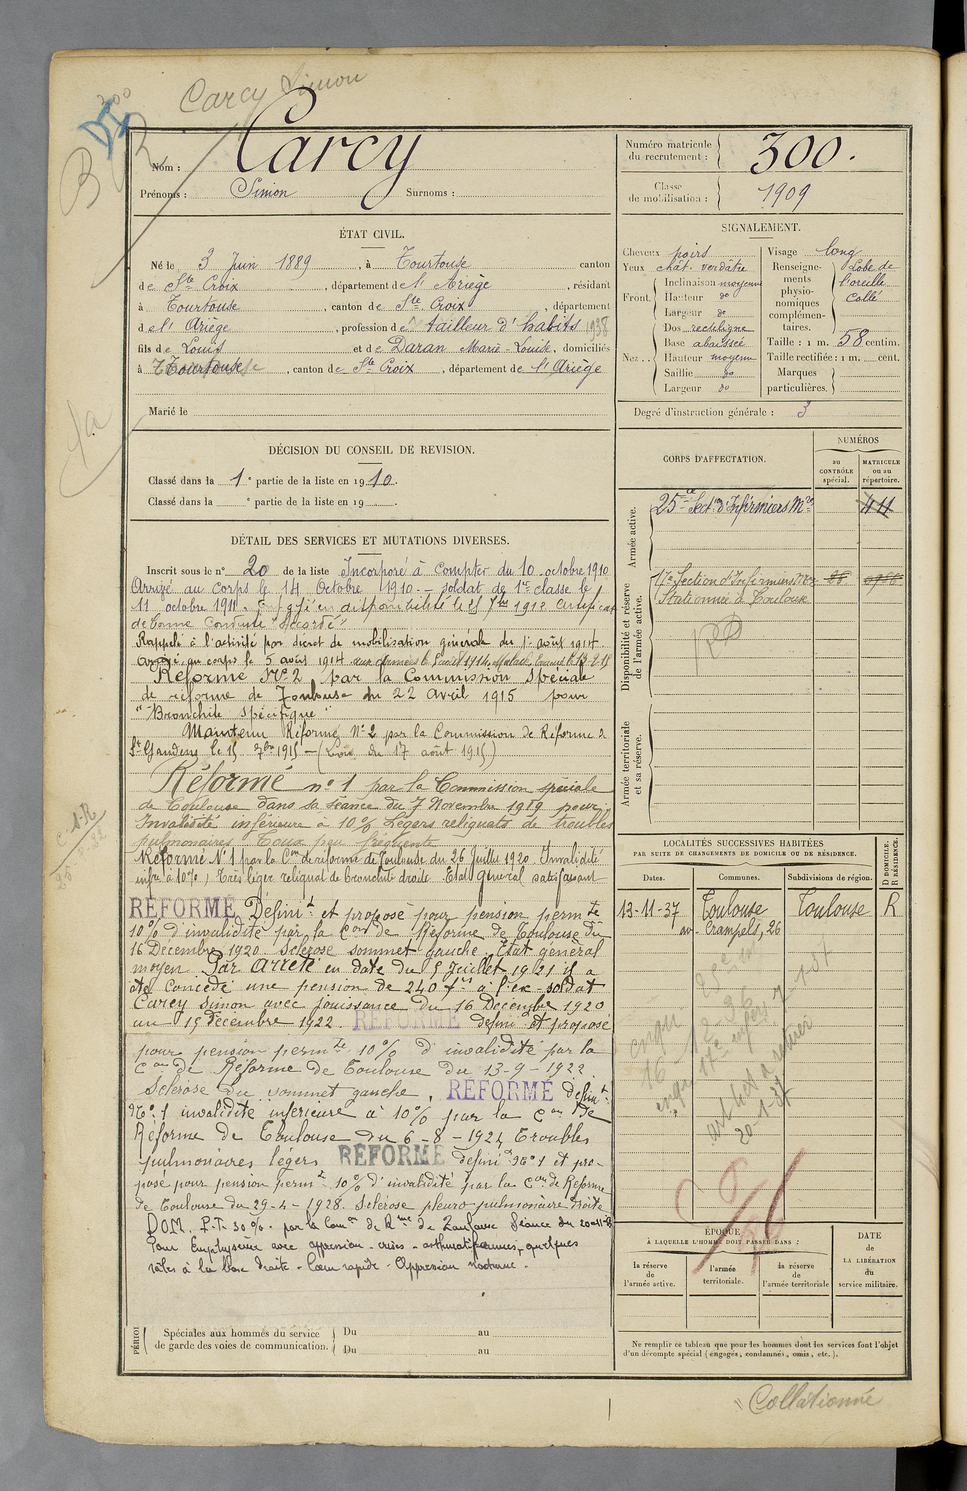 Carcy Simon
300
Nom : Carcy
Prénoms : Simon Surnoms :
Numéro matricule du recrutement : 300.
Classe de mobilisation : 1909
ÉTAT CIVIL.
Né le 3 Juin 1889, à Tourtouse canton
de Ste Croix, département de l'Ariège, résidant
à Tourtouse, canton de Ste Croix, département
de l'Ariège, profession de tailleur d'habits 1938
fils de Louis et de Daran Marie-Louise, domiciliés
à Tourtouse, canton de Ste Croix, département de l'Ariège
Marié le
SIGNALEMENT.
Cheveux noirs
Yeux chât. verdâtre
Front. Inclinaison moyenne
Hauteur do
Largeur do
Nez Dos rectiligne
Base abaissée
Hauteur moyenne
Saillie do
Largeur do
Visage long
Renseignements physionomiques complémentaires. Lobe de l'oreille collé
Taille : 1 m. 58 centim.
Taille rectifiée : 1 m. cent.
Marques particulières.
Degré d'instruction générale : 3
DÉCISION DU CONSEIL DE REVISION.
Classé dans la 1e partie de la liste en 1910.
Classé dans la e partie de la liste en 19
DÉTAIL DES SERVICES ET MUTATIONS DIVERSES.
Inscrit sous le n° 20 de la liste Incorporé à compter du 10 octobre 1910
Arrivé au corps le 14 Octobre 1910. — soldat de 1re classe le
11 octobre 1911. en disponibilité le 25 7bre 1912 Certificat
de bonne conduite "Accordé"
Rappelé à l'activité par décret de mobilisation générale du 1er août 1914
arrivé au corps le 5 août 1914
Réformé No 2 par la Commission Spéciale
de réforme de Toulouse du 22 avril 1915 pour
"Bronchite spécifique"
Maintenu Réformé No 2 par la Commission de Réforme de
St Gaudens le 15 7bre 1915 — (Loi du 17 août 1915)
Réformé no 1 par la Commission spéciale
de Toulouse dans sa séance du 7 Novembre 1919 pour
Invalidité inférieure à 10% Légers reliquats de troubles
pulmonaires Toux peu fréquente
Réformé No 1 par la Con de réforme de Toulouse du 26 Juillet 1920. Invalidité
infre à 10%, Très léger reliquat de bronchite droite. Etat général satisfaisant
RÉFORMÉ Définit et proposé pour pension permte
10% d'invalidité par la Con de Réforme de Toulouse du
16 Décembre 1920. Sclérose sommet gauche. Etat général
moyen. Par Arrêté en date du 5 Juillet 1921 il a
été concédé une pension de 240 frs à l'ex-soldat
Carcy Simon avec jouissance du 16 Décembre 1920
au 15 décembre 1922. RÉFORMÉ définit et proposé
pour pension permte 10% d'invalidité par la
Con de Réforme de Toulouse du 13-9-1922
Sclérose du sommet gauche. RÉFORMÉ définit
No 1 invalidité inférieure à 10% par la Con de
Réforme de Toulouse du 6-8-1924 Troubles
pulmonaires légers RÉFORMÉ définit No 1 et pro-
posé pour pension permte 10% d'invalidité par la Con de Réforme
de Toulouse du 29-4-1928. Sclérose pleuro pulmonaire droite
P.T. 30%. par la Comon de Rme de Toulouse Séance du
Pour Emphysème avec oppression - crises - asthmatiformes, quelques
râles à la base droite - Cœur rapide - Oppression nocturne.
PÉRIOD
Spéciales aux hommes du service de garde des voies de communication.
Du au
Du au
CORPS D'AFFECTATION.
NUMÉROS
au CONTRÔLE spécial.
MATRICULE ou au répertoire.
Armée active.
25e Sectn d'Infirmiers Mres
Disponibilité et réserve de l'armée active.
17e Section d'Infirmiers Mres
Stationnée à Toulouse
Armée territoriale et sa réserve.
LOCALITÉS SUCCESSIVES HABITÉES
PAR SUITE DE CHANGEMENTS DE DOMICILE OU DE RÉSIDENCE.
Dates. Communes. Subdivisions de région. D DOMICILE. R RÉSIDENCE.
13-11-37 Toulouse Toulouse R
av. Crampels, 26
20-1-37
ÉPOQUE
À LAQUELLE L'HOMME DOIT PASSER DANS :
la réserve de l'armée active.
l'armée territoriale.
la réserve de l'armée territoriale
DATE de LA LIBÉRATION du service militaire.
Ne remplir ce tableau que pour les hommes dont les services font l'objet
d'un décompte spécial (engagés, condamnés, omis, etc.).
Collationné